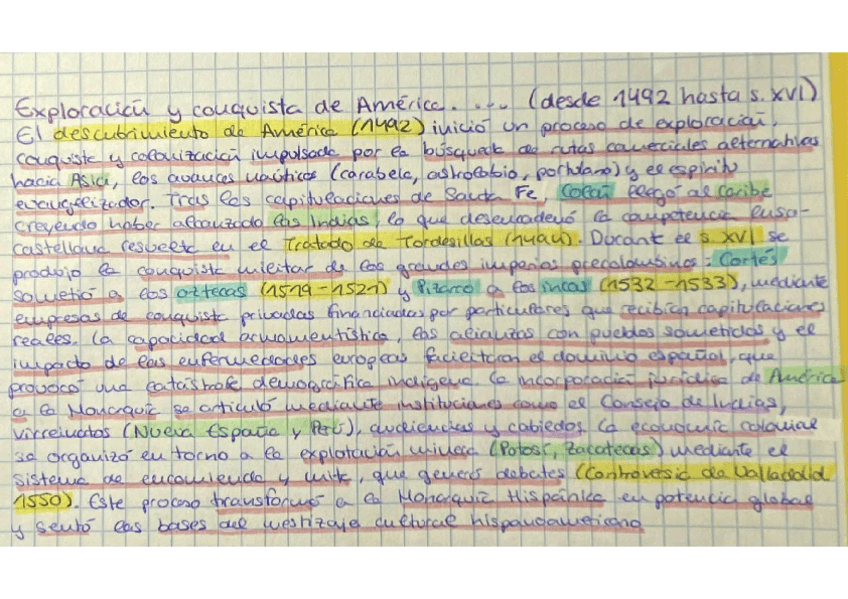 Exploración y conquista de América. ... (desde 1492 hasta s. XVI)
El descubrimiento de América (1492) inició un proceso de exploración,
conquista y colonización impulsada por la búsqueda de rutas comerciales alternativas
hacia Asia, los avances náuticos (carabela, astrolabio, portulano) y el espíritu
evangelizador. Tras las capitulaciones de Santa Fe, Colón llegó al Caribe
creyendo haber alcanzado las Indias, lo que desencadenó la competencia luso-
castellana resuelta en el Tratado de Tordesillas (1494). Durant el s. XVI se
produjo la conquista militar de los grandes imperios precolombinos: Cortés
sometió a los aztecas (1519-1521) y Pizarro a los incas (1532-1533), mediante
empresas de conquista privadas financiadas por particulares que recibían capitulaciones
reales. La capacidad armamentística, las alianzas con pueblos sometidos y el
impacto de las enfermedades europeas facilitaron el dominio español, que
provocó una catástrofe demográfica indígena. La incorporación jurídica de América
a la Monarquía se articuló mediante instituciones como el Consejo de Indias,
virreinatos (Nueva España y Perú), audiencias y cabildos. La economía colonial
se organizó en torno a la explotación minera (Potosí, Zacatecas) mediante el
sistema de encomienda y mita, que generó debates (Controversia de Valladolid
1550). Este proceso transformó a la Monarquía Hispánica en potencia global
y sentó las bases del mestizaje cultural hispanoamericano